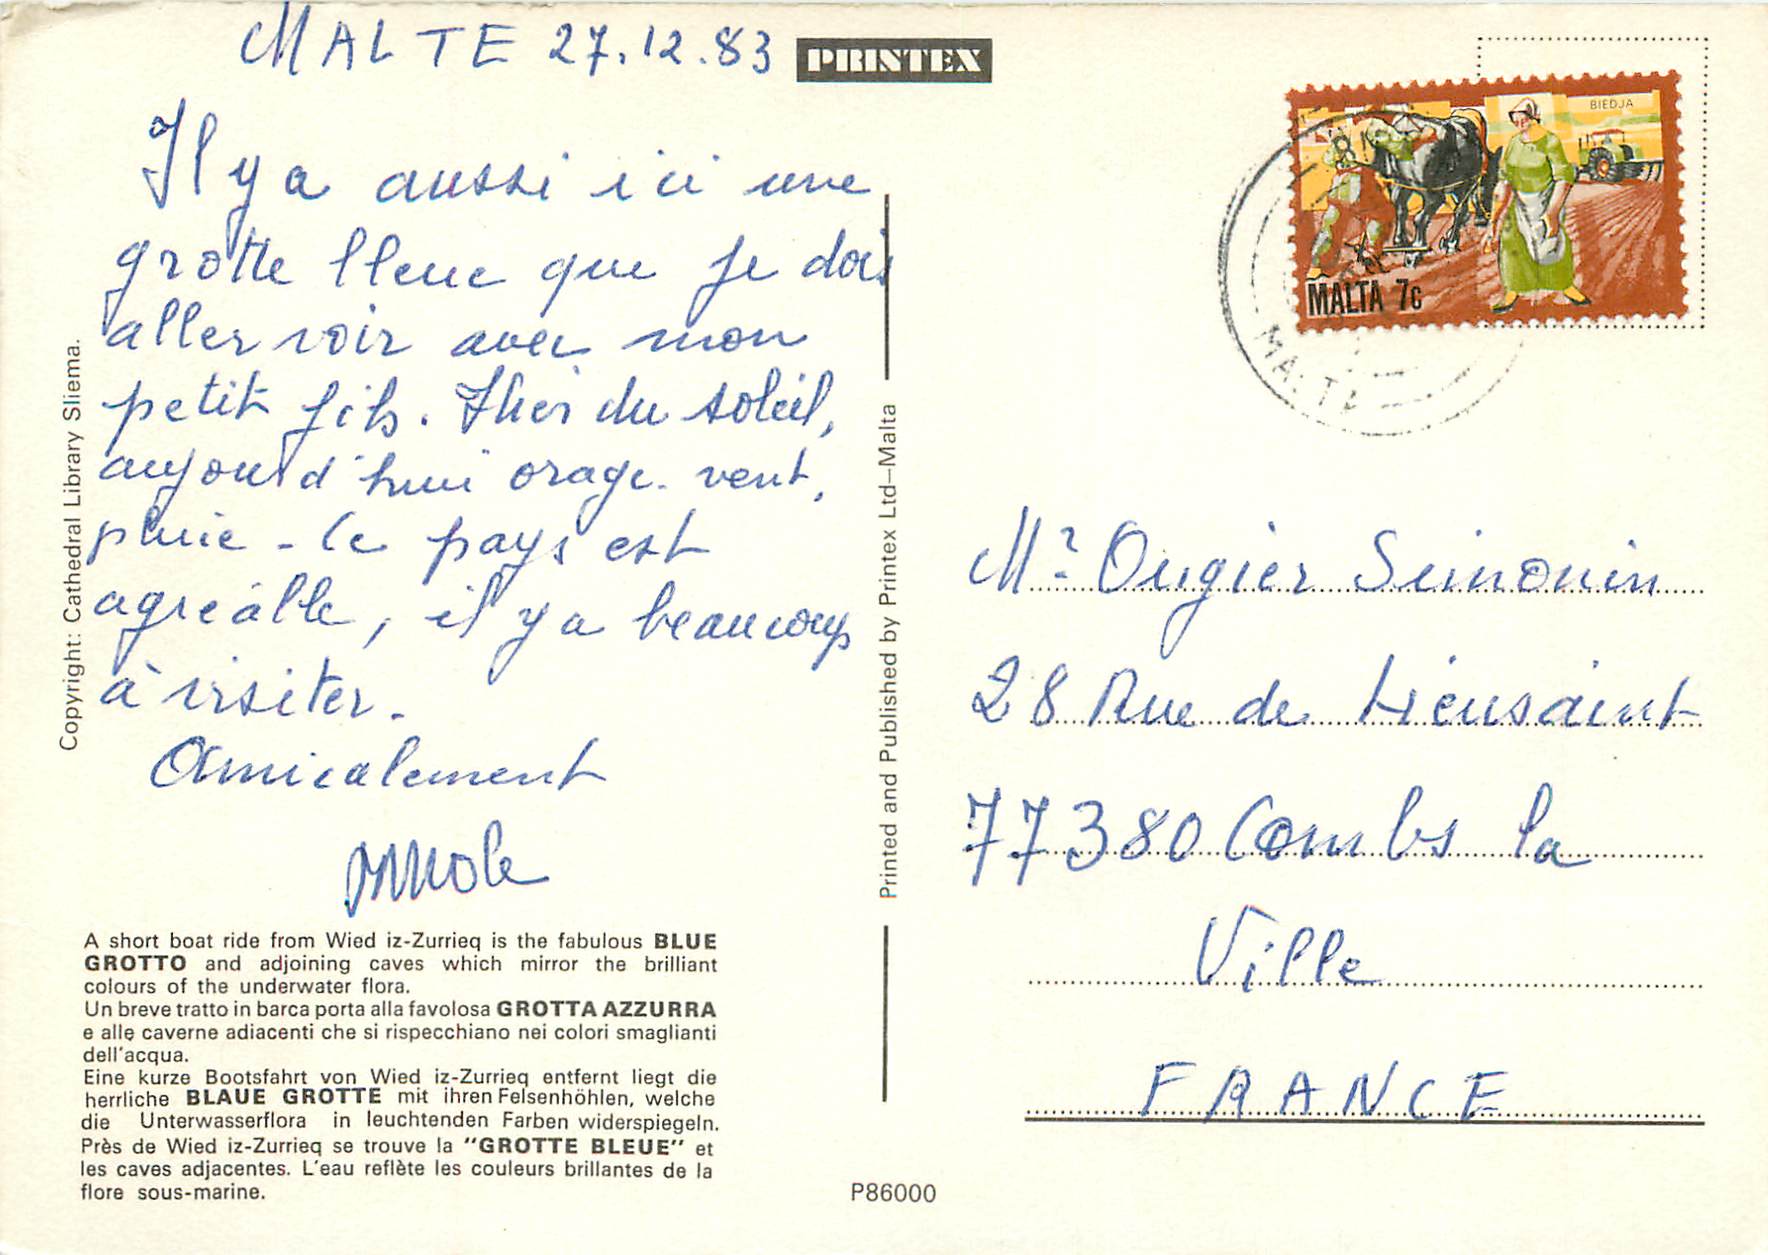 MALTE 27.12.83
PRINTEX
Il y a aussi ici une
grotte bleue que je dois
aller voir avec mon
petit fils. Hier du soleil,
aujourd'hui orage. vent,
pluie - Ce pays est
agréable, il y a beaucoup
à visiter.
Amicalement
A short boat ride from Wied iz-Zurrieq is the fabulous BLUE
GROTTO and adjoining caves which mirror the brilliant
colours of the underwater flora.
Un breve tratto in barca porta alla favolosa GROTTA AZZURRA
e alle caverne adiacenti che si rispecchiano nei colori smaglianti
dell'acqua.
Eine kurze Bootsfahrt von Wied iz-Zurrieq entfernt liegt die
herrliche BLAUE GROTTE mit ihren Felsenhöhlen, welche
die Unterwasserflora in leuchtenden Farben widerspiegeln.
Près de Wied iz-Zurrieq se trouve la "GROTTE BLEUE" et
les caves adjacentes. L'eau reflète les couleurs brillantes de la
flore sous-marine.
Copyright: Cathedral Library Sliema.
Printed and Published by Printex Ltd–Malta
P86000
BIEDJA
MALTA 7c
MALTA
Mr Ougier Simonin
28 Rue de Lieusaint
77380 Combs la
Ville
FRANCE